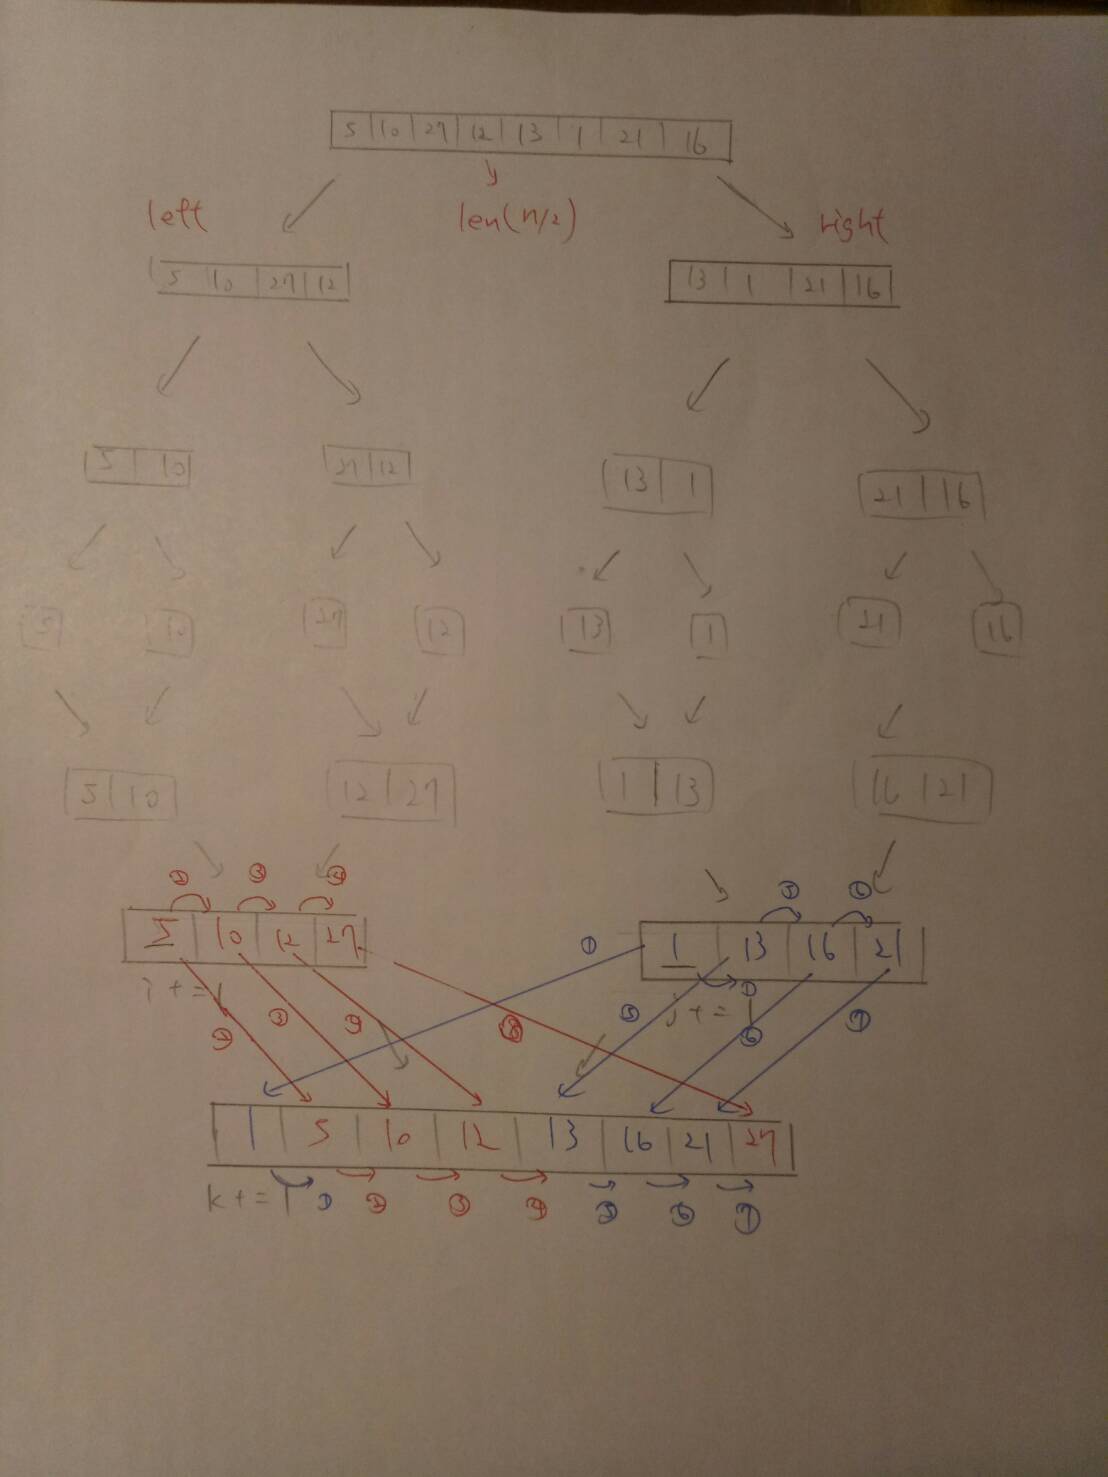 5 10 27 12 13 1 21 16
left len(n/2) right
5 10 27 12 13 1 21 16
5 10 27 12 13 1 21 16
5 10 27 12 13 1 21 16
5 10 12 27 1 13 16 21
② ③ ④ ⑤ ⑥
5 10 12 27 ① 1 13 16 21
i += 1 j += 1 ①
② ③ ④ ⑧ ⑤ ⑥ ⑦
1 5 10 12 13 16 21 27
k += 1 ① ② ③ ④ ⑤ ⑥ ⑦